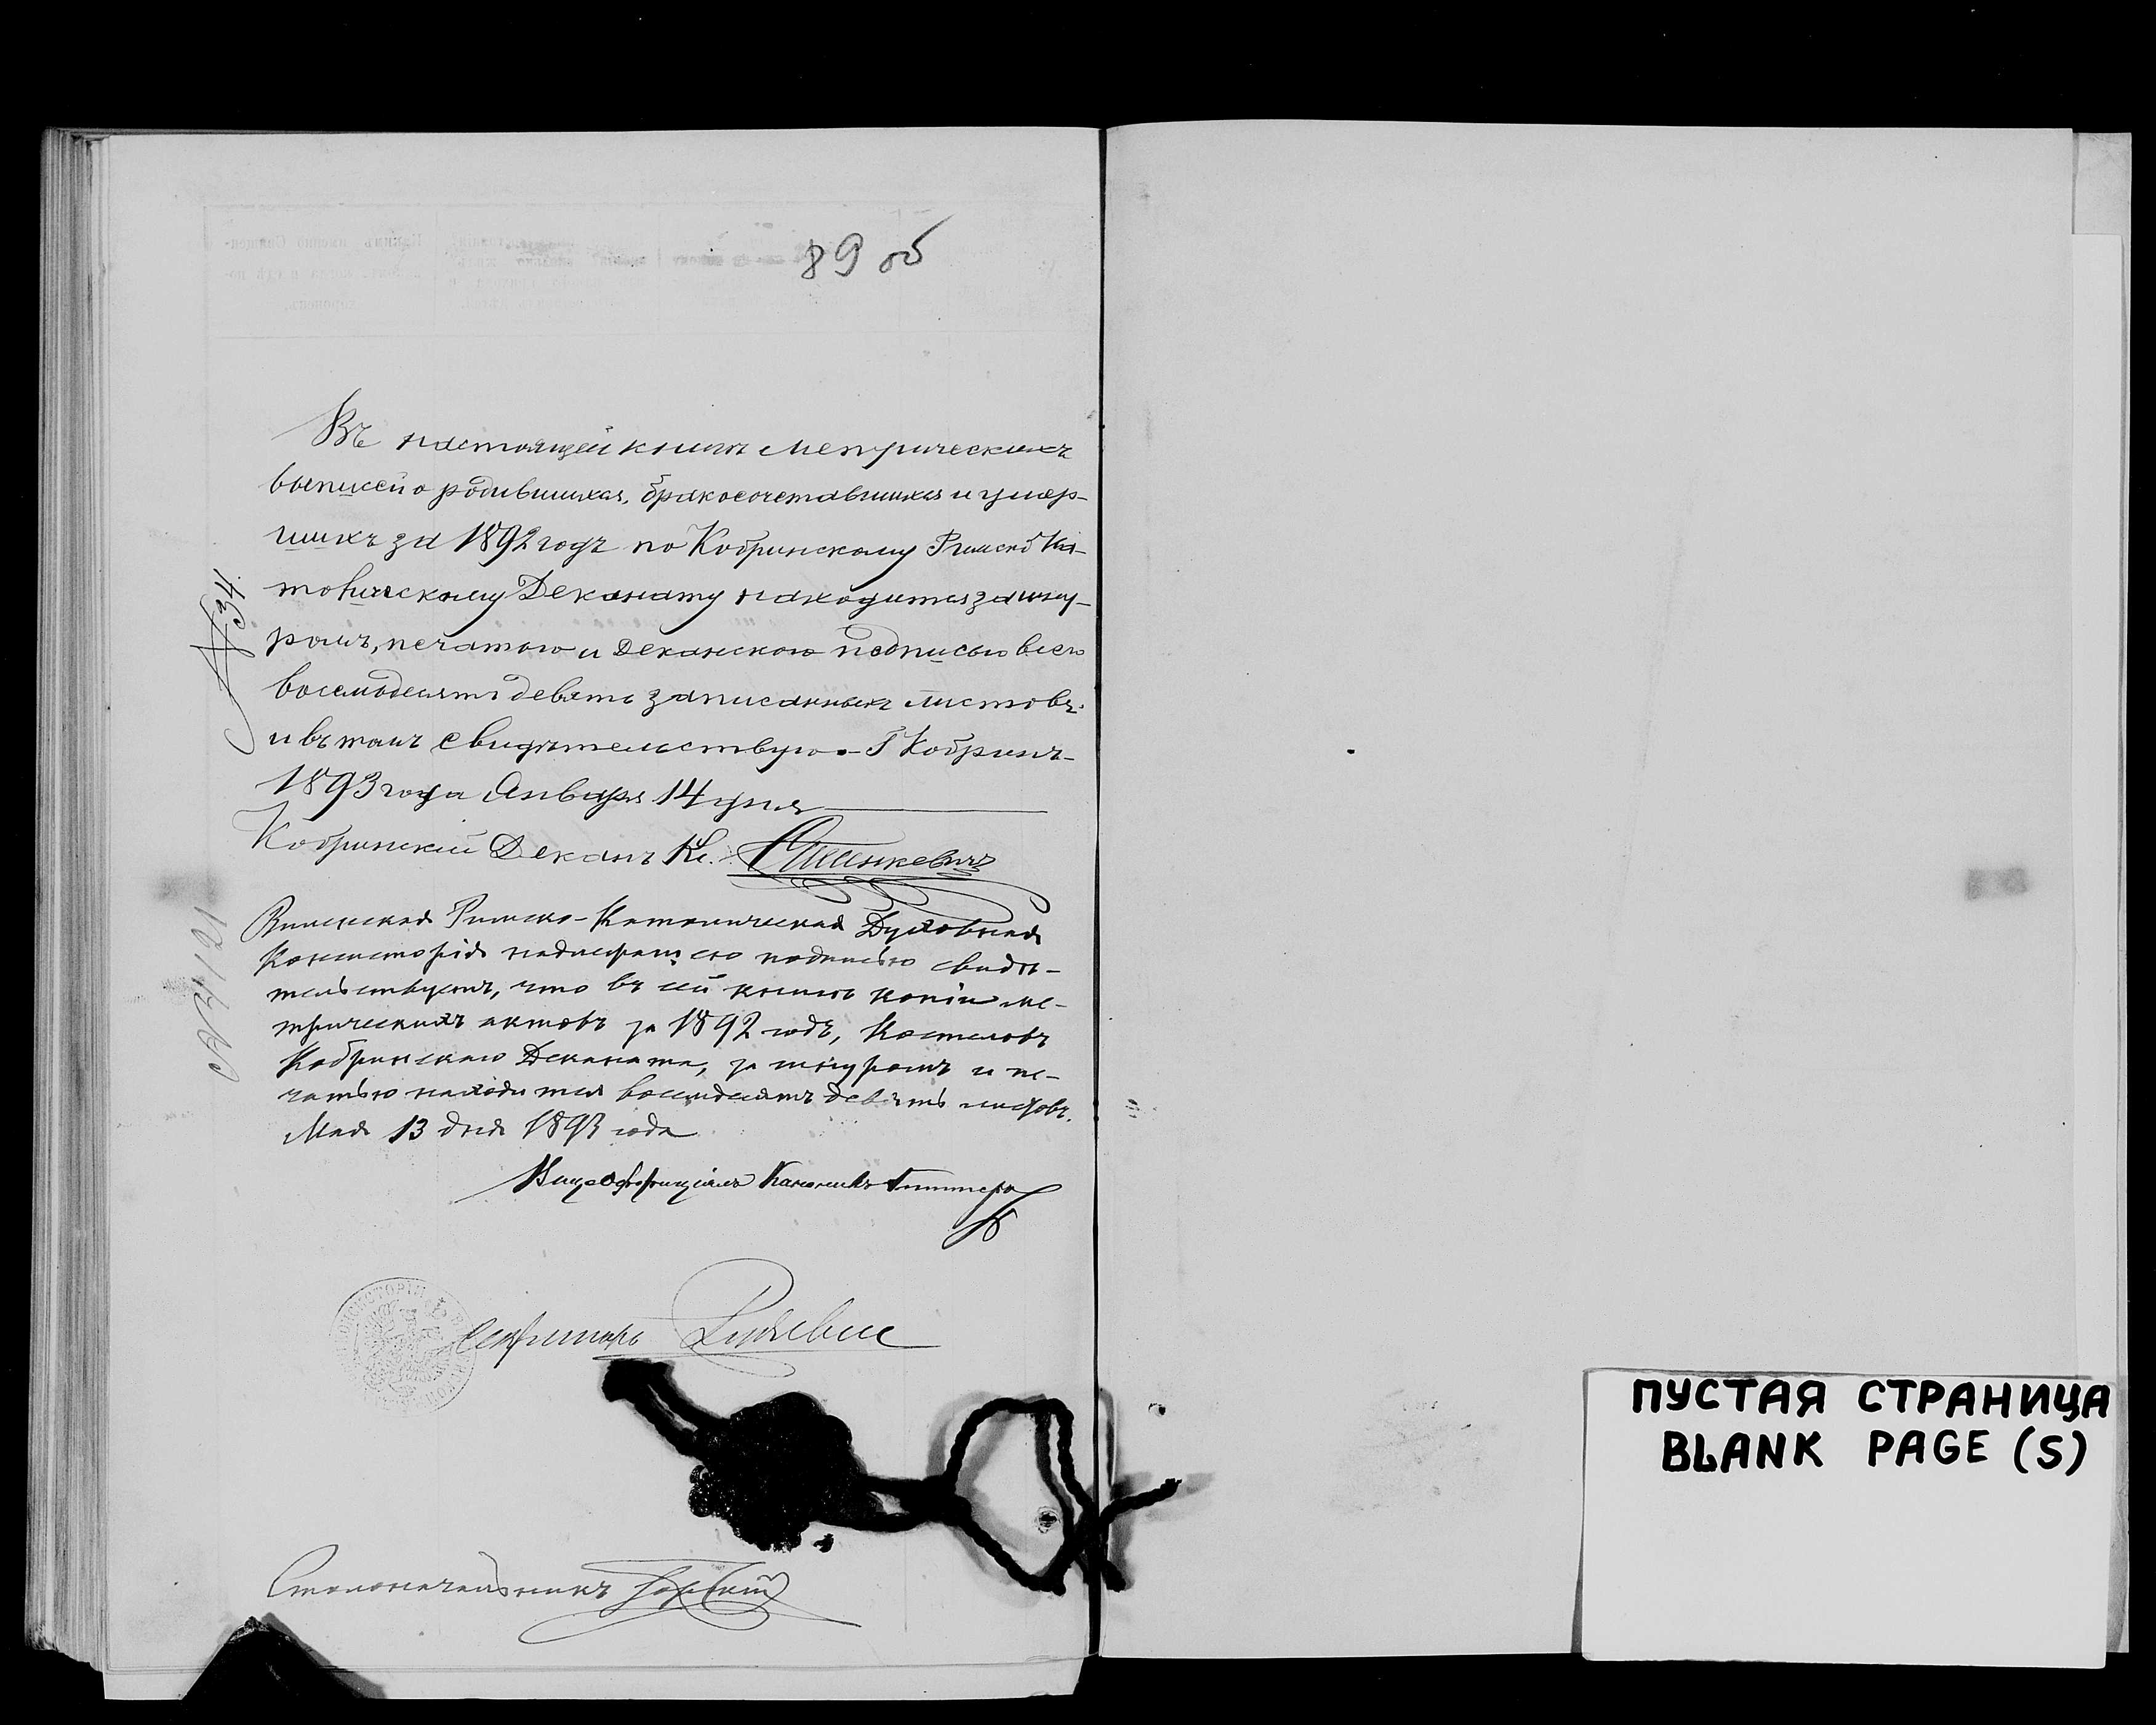 89 об
Въ настоящей книгѣ метрическихъ
выписей о родившихся, бракосочетавшихся и умер-
шихъ за 1892 годъ по Кобринскому Римско Ка-
толическому Деканату находится за шну-
ромъ, печатью и Деканскою подписью всего
восемьдесятъ девять записанныхъ листовъ
и въ томъ свидѣтельствую. – Г Кобринъ –
1893 года Января 14 дня
Кобринскій Деканъ Кс.
№ 34
Виленская Римско-Католическая Духовная
Консисторія надлежащею подписью свидѣ-
тельствуетъ, что въ сей книгѣ копіи ме-
трическихъ актовъ за 1892 годъ, Костеловъ
Кобринскаго Деканата, за шнуромъ и пе-
чатью находится восемдесятъ девять листовъ.
Мая 13 дня 1893 года
Вицеоффиціалъ Каноникъ
Секретарь
Столоначальникъ
ПУСТАЯ СТРАНИЦА
BLANK PAGE (S)